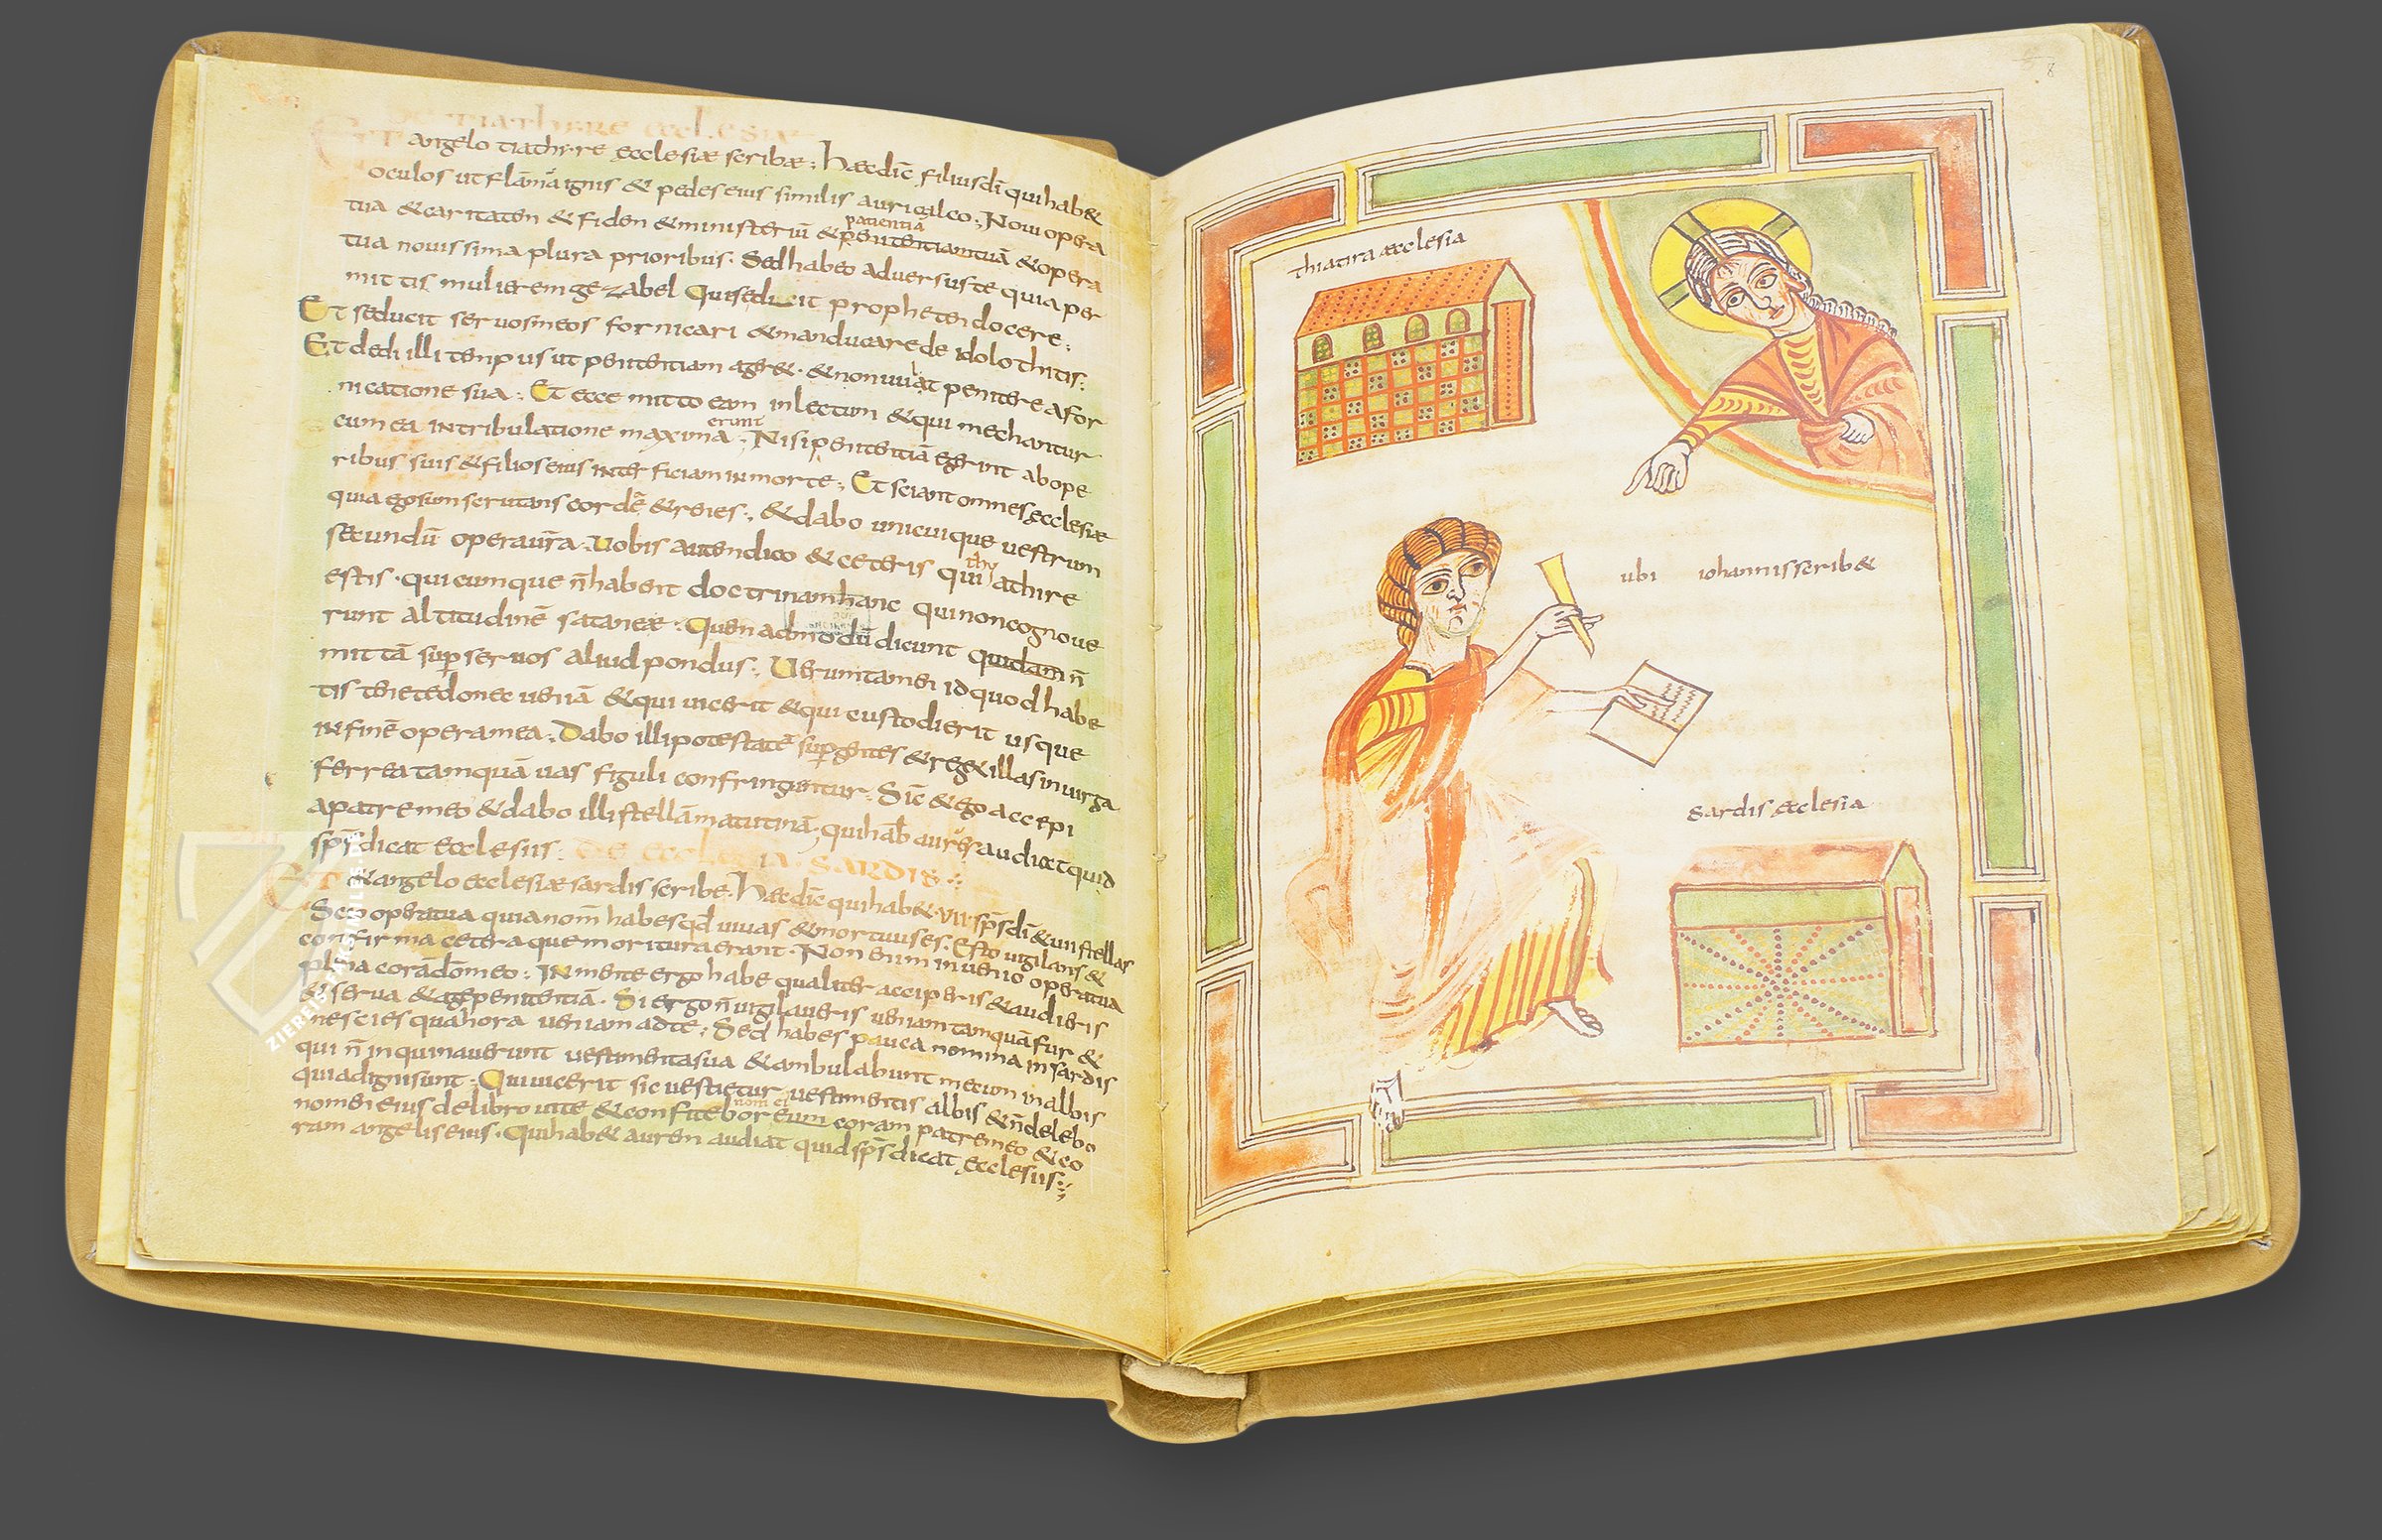 DE TIATHIRE ECCLESIAE
ET angelo tiathirre ecclesiae scribae; Haec dic̄ filius dī qui hab&
oculos ut flāmā ignis & pedes eius similis auricalco; Noui opera
patientiā
tua & caritaten & fiden & ministeriū & penitentiam tuā & opera
tua nouissima plura prioribus. Sed habeo aduersus te quia per
mittis mulierem gezabel Qui seducit propheten docere;
Et seducit seruos meos fornicari & manducare de idolothitis;
Et dedi illi tempus ut penitentiam ager&. & non uult penitere a for
nicatione sua; Et ecce mitto eam in lectum & qui mechantur
erunt
cum ea in tribulatione maxima; Nisi penitentiā egerint ab ope
ribus suis & filios eius interficiam in morte; Et sciant omnes ecclesiae
quia ego sum scrutans cordē & renes; & dabo unicuique uestrum
secundū opera ur̄a. Uobis autem dico & ceteris qui
thy
athire
estis. quicumque n̄ habent doctrinam hanc qui non cognoue
runt altitudinē satanae; Quen ad modū dicunt quidam n̄
mittā sup seruos aliud pondus; Uerumtamen id quod habe
tis tenete donec ueniā & qui uicerit & qui custodierit usque
in finē opera mea; Dabo illi potestatē sup gentes & reg& illas in uirga
ferrea tamquā uas figuli confringuntur. Sic & ego accepi
a patre meo & dabo illi stellā matutinā. qui hab& aurē audiat quid
sp̄s dicat ecclesiis; DE ECCLESIA SARDIS
ET & angelo ecclesiae sardis scribe. Haec dic̄ qui hab& VII sp̄s dī & uii stellas
Scio opera tua quia nom̄ habes qd̄ uiuas & mortuus es. Esto uigilans &
confirma cetera que moritura erant. Non enim inuenio opera tua
plena corā dō meo; IN mente ergo habe qualiter acciperis & audieris
& serua & age penitentiā. Si ergo n̄ uigilaueris ueniam tamquā fur &
nescies qua hora ueniam ad te; Sed habes pauca nomina in sardis
qui n̄ inquinauerunt uestimenta sua & ambulabunt mecum in albis
quia digni sunt. Qui uicerit sic uestietur uestimentis albis & n̄ delebo
nomen ei
nomen eius de libro uite & confitebor eum coram patre meo & co
ram angelis eius. Qui hab& aurem audiat quid sp̄s dicat ecclesiis;
8
thiatira aecclesia
ubi iohannis scrib&
sardis ecclesia